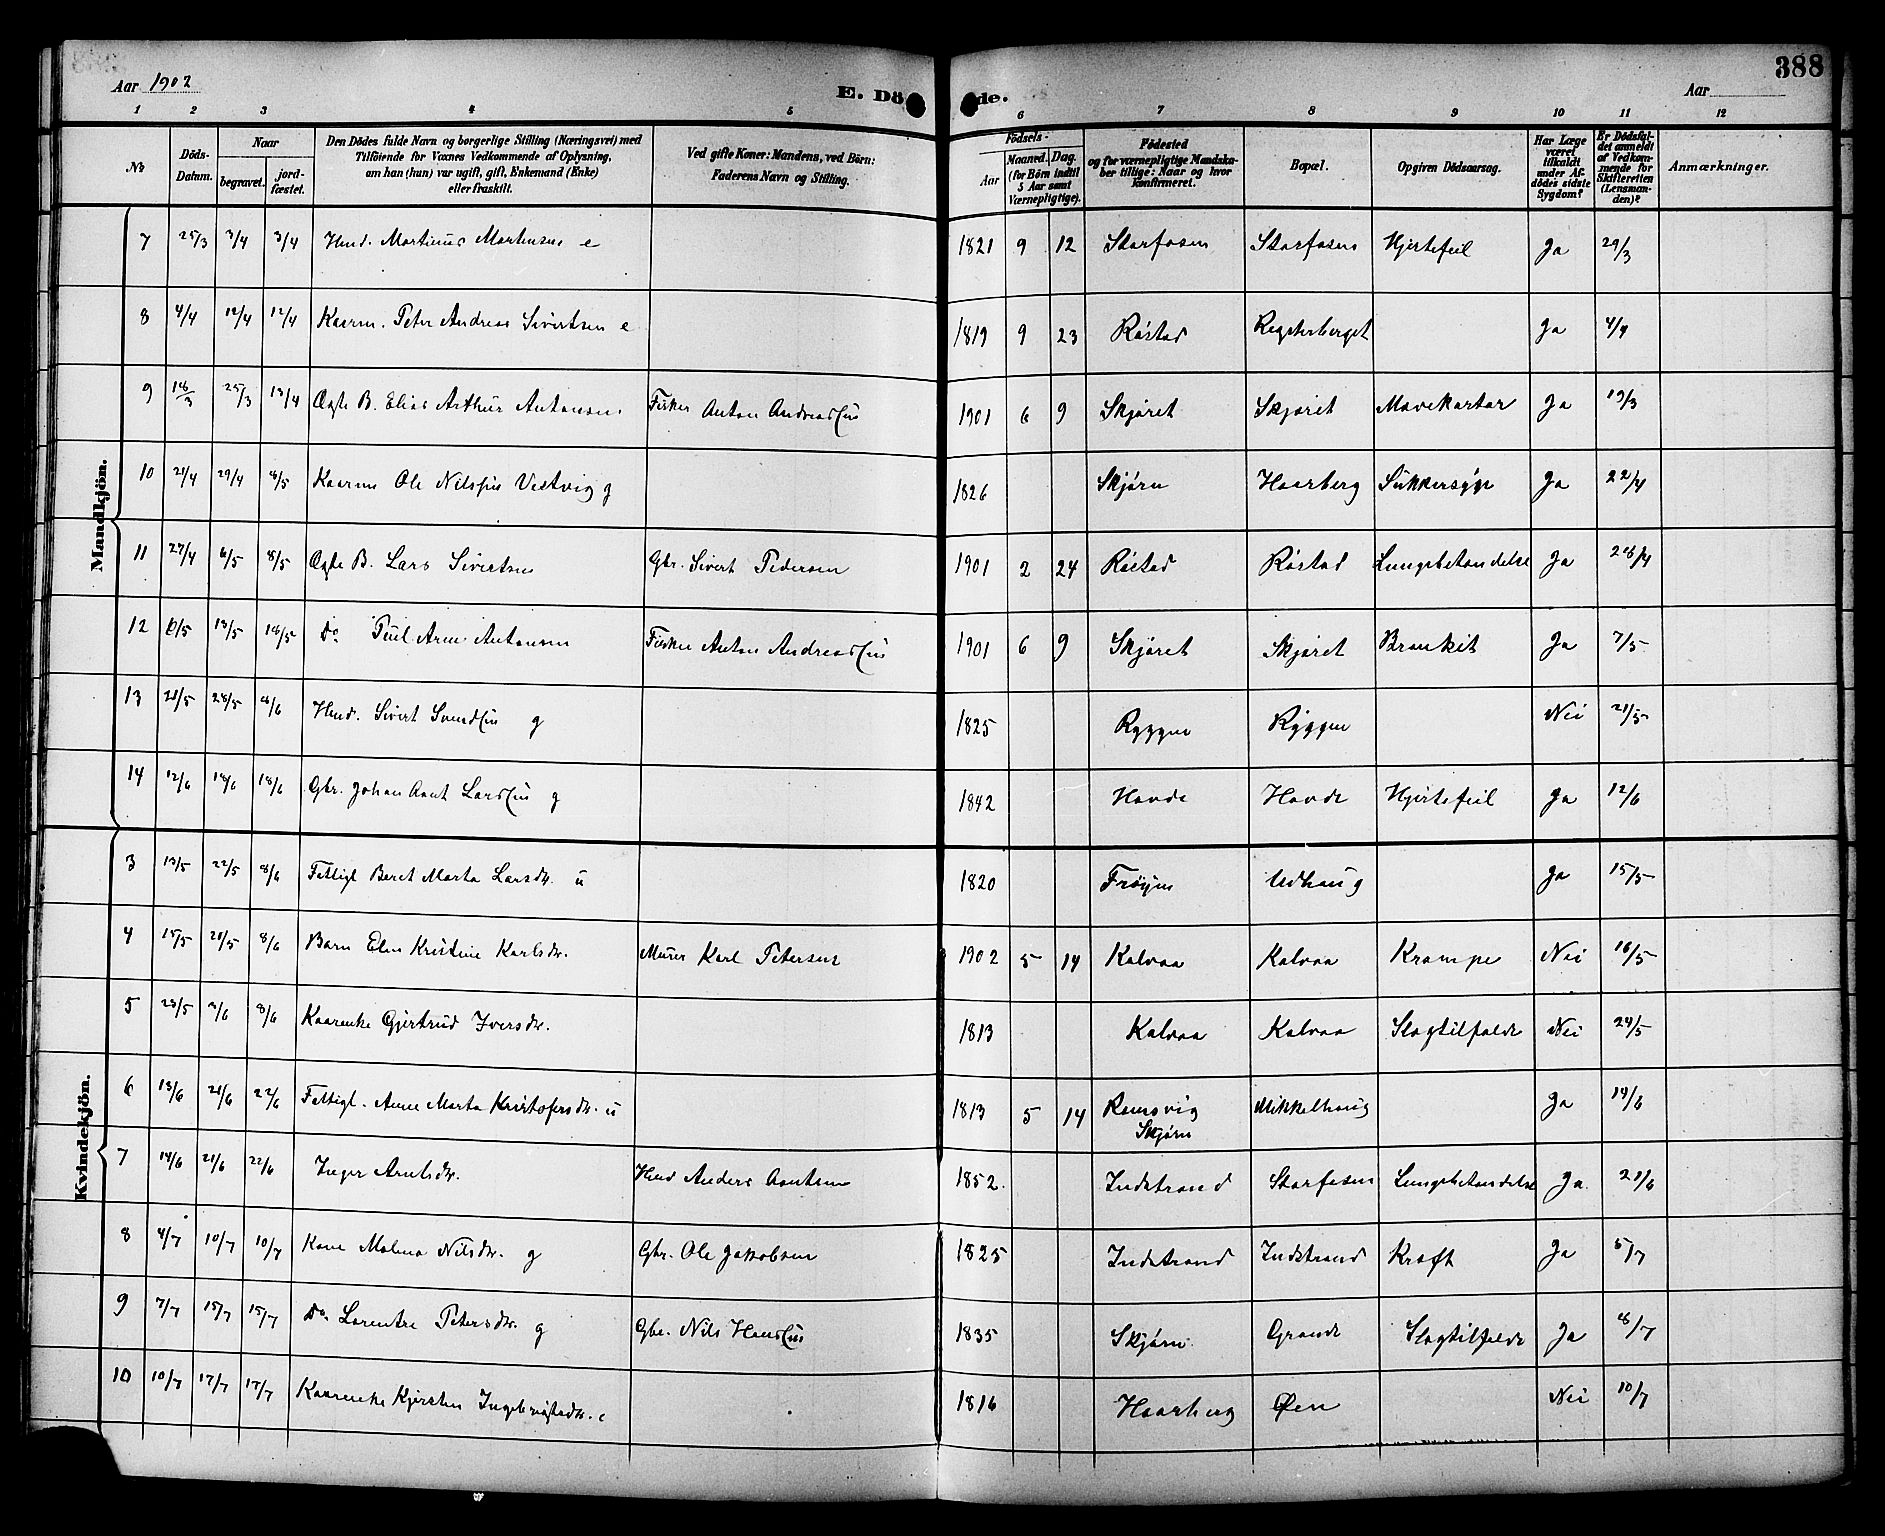 388
Aar 1902
E. Dö de.
Aar
1 2 3 4 5 6 7 8 9 10 11 12
No
Döds-Datum.
Naar
begravet.
jord-fæstet.
Den Dödes fulde Navn og borgerlige Stilling (Næringsvei) med
Tilföiende for Voxnes Vedkommende af Oplysning,
om han (hun) var ugift, gift, Enkemand (Enke)
eller fraskilt.
Ved gifte Koner: Mandens, ved Börn:
Faderens Navn og Stilling.
Födsels-
Aar
Maaned. Dag.
(for Börn indtil
5 Aar samt
Værnepligtige).
Födested
og for værnepligtige Mandska-
ber tillige: Naar og hvor
konfirmeret.
Bopæl.
Opgiven Dödsaarsag.
Har Læge
været
tilkaldt
under Af-
dödes sidste
Sygdom?
Er Dödsfal-
det anmeldt
af Vedkom-
mende for
Skifteretten
(Lensman-
den)?
Anmærkninger.
Mandkjön.
7 25/3 3/4 3/4 Hmd. Martinus Martinsen e 1821 9 12 Storfosen Storfosen Hjertefeil Ja 29/3
8 4/4 12/4 12/4 Kaarm. Peter Andreas Sivertsen e 1819 9 23 Røstad Ja 4/4
9 18/3 25/3 13/4 Ægte B. Elias Arthur Antonsen Fisker Anton Andreassen 1901 6 9 Skjøret Skjøret Mavekatar Ja 19/3
10 21/4 29/4 8/5 Kaarm Ole Nilssen Vestvig g 1826 Skjørn Haarberg Sukkersyge Ja 22/4
11 27/4 6/5 8/5 Ægte B. Lars Sivertsen Gbr. Sivert Pedersen 1901 2 24 Røstad Røstad Lungebetændelse Ja 28/4
12 6/5 13/5 18/5 Do Antonsen Fisker Anton Andreassen 1901 6 9 Skjøret Skjøret Bronkit Ja 7/5
13 21/5 28/5 8/6 Hmd. Sivert Svendsen g 1825 Ryggen Ryggen Nei 21/5
14 12/6 18/6 18/6 Gbr. Johan Aant Larssen g 1842 Hovde Hovde Hjertefeil Ja 12/6
Kvindekjön.
3 13/5 22/5 8/6 Fattigl Beret Marta Larsdr. u 1820 Frøyen Udhaug Ja 15/5
4 15/5 21/5 8/6 Barn Elen Kristine Karlsdr. Murer Karl Petersen 1902 5 14 Kalvaa Kalvaa Krampe Nei 16/5
5 23/5 3/6 8/6 Kaarenke Gjertrud Iversdr. 1813 Kalvaa Kalvaa Slagtilfælde Nei 24/5
6 13/6 21/6 22/6 Fattigl. Anne Marta Kristofersdr. u 1813 5 14 Ramsvig Skjørn Mikkelhaug Ja 14/6
7 14/6 21/6 22/6 Inger Arntsdr. Hmd Anders Aantsen 1852. Indstrand Storfosen Lungebetændelse Ja 21/6
8 4/7 10/7 10/7 Kone Malena Nilsdr. g Gbr. Ole Jakobsen 1825 Indstrand Indstrand Kræft Ja 5/7
9 7/7 15/7 15/7 Do Lorentse Petersdr. g Gbr. Nils Hanssen 1835 Skjørn Grande Slagtilfælde Ja 8/7
10 10/7 17/7 17/7 Kaarenke Kjersten Ingebrigtsdr. e 1816 Haarberg Øen Nei 10/7